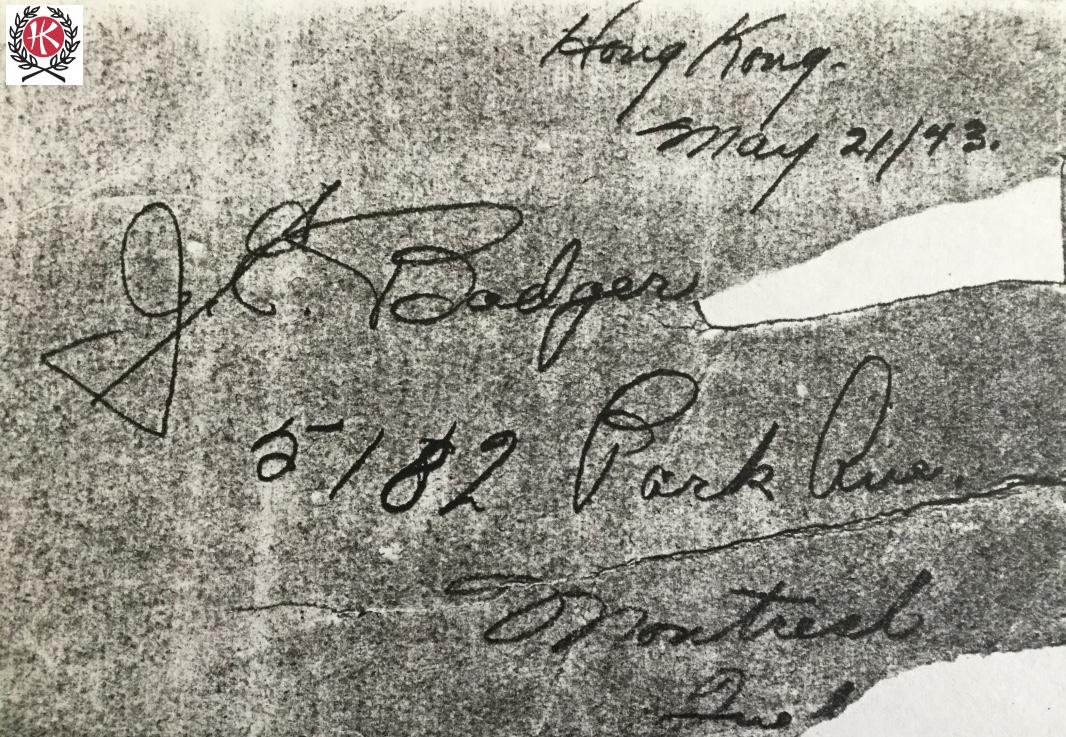 HK
Hong Kong.
May 21/43.
J. C. Badger
5182 Park Ave.
Montreal
Que